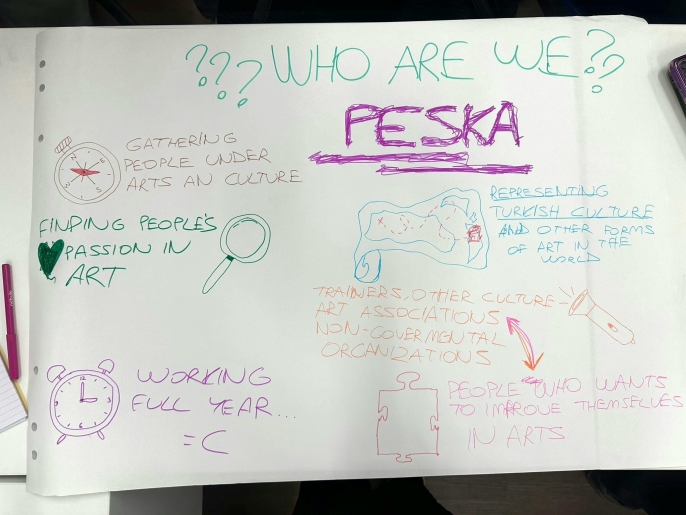 ??? WHO ARE WE??
PESKA
GATHERING
PEOPLE UNDER
ARTS AN CULTURE
REPRESENTING
TURKISH CULTURE
AND OTHER FORMS
OF ART IN THE
WORLD
FINDING PEOPLE'S
PASSION IN
ART
TRAINERS, OTHER CULTURE
ART ASSOCIATIONS
NON-GOVERMENTAL
ORGANIZATIONS
WORKING
FULL YEAR...
=C
PEOPLE WHO WANTS
TO IMPROVE THEMSELVES
IN ARTS